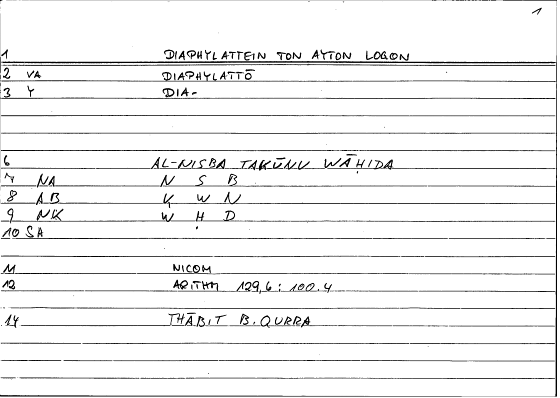 1
1 DIAPHYLATTEIN TON AYTON LOGON
2 VA DIAPHYLATTŌ
3 Y DIA-
6 AL-NISBA TAKŪNU WĀḤIDA
7 NA N S B
8 AB K W N
9 NK W Ḥ D
10 SA
11 NICOM
12 ARITHM 129,6 : 100.4
14 THĀBIT B. QURRA